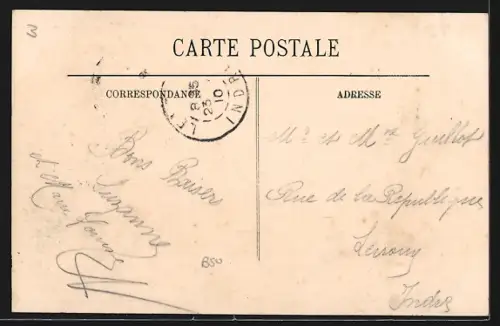 3
CARTE POSTALE
CORRESPONDANCE
ADRESSE
18 35
23
10
INDRE
Bons Baisers
Suzanne
et
B50
Mr et Mme Guillot
Rue de la Republique
Levroux
Indre